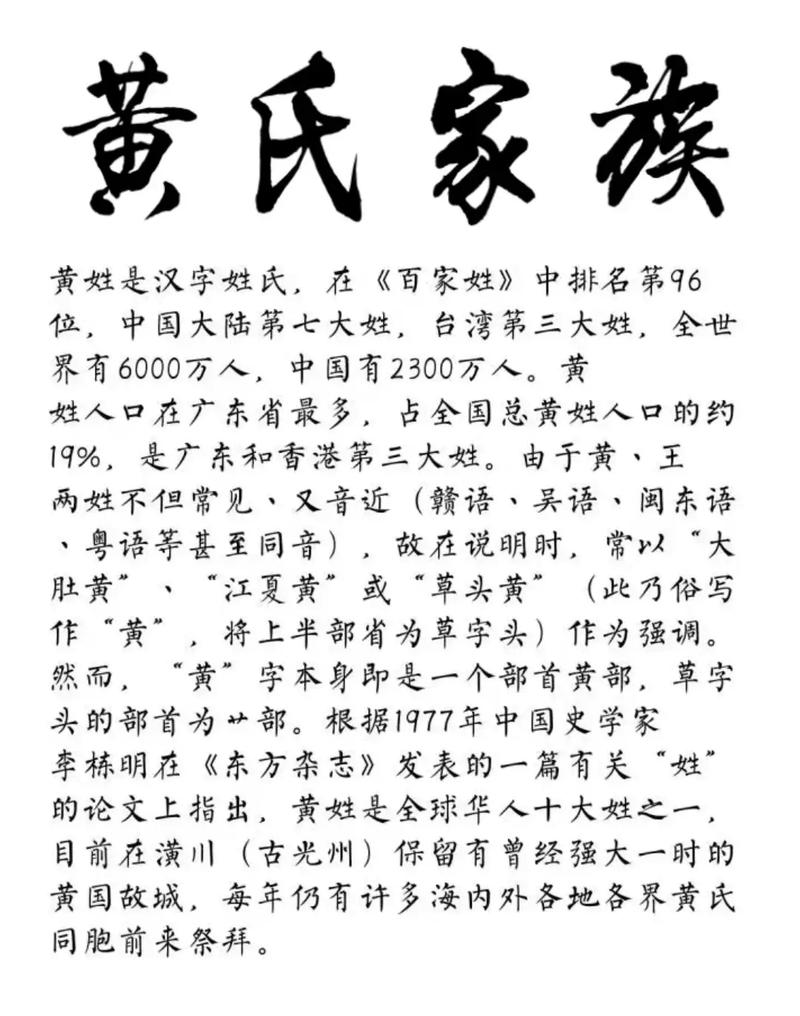 黄氏家族
黄姓是汉字姓氏，在《百家姓》中排名第96
位，中国大陆第七大姓，台湾第三大姓，全世
界有6000万人，中国有2300万人。黄
姓人口在广东省最多，占全国总黄姓人口的约
19%，是广东和香港第三大姓。由于黄、王
两姓不但常见、又音近（赣语、吴语、闽东语
、粤语等甚至同音），故在说明时，常以“大
肚黄”、“江夏黄”或“草头黄”（此乃俗写
作“黄”，将上半部省为草字头）作为强调。
然而，“黄”字本身即是一个部首黄部，草字
头的部首为艹部。根据1977年中国史学家
李栋明在《东方杂志》发表的一篇有关“姓”
的论文上指出，黄姓是全球华人十大姓之一，
目前在潢川（古光州）保留有曾经强大一时的
黄国故城，每年仍有许多海内外各地各界黄氏
同胞前来祭拜。